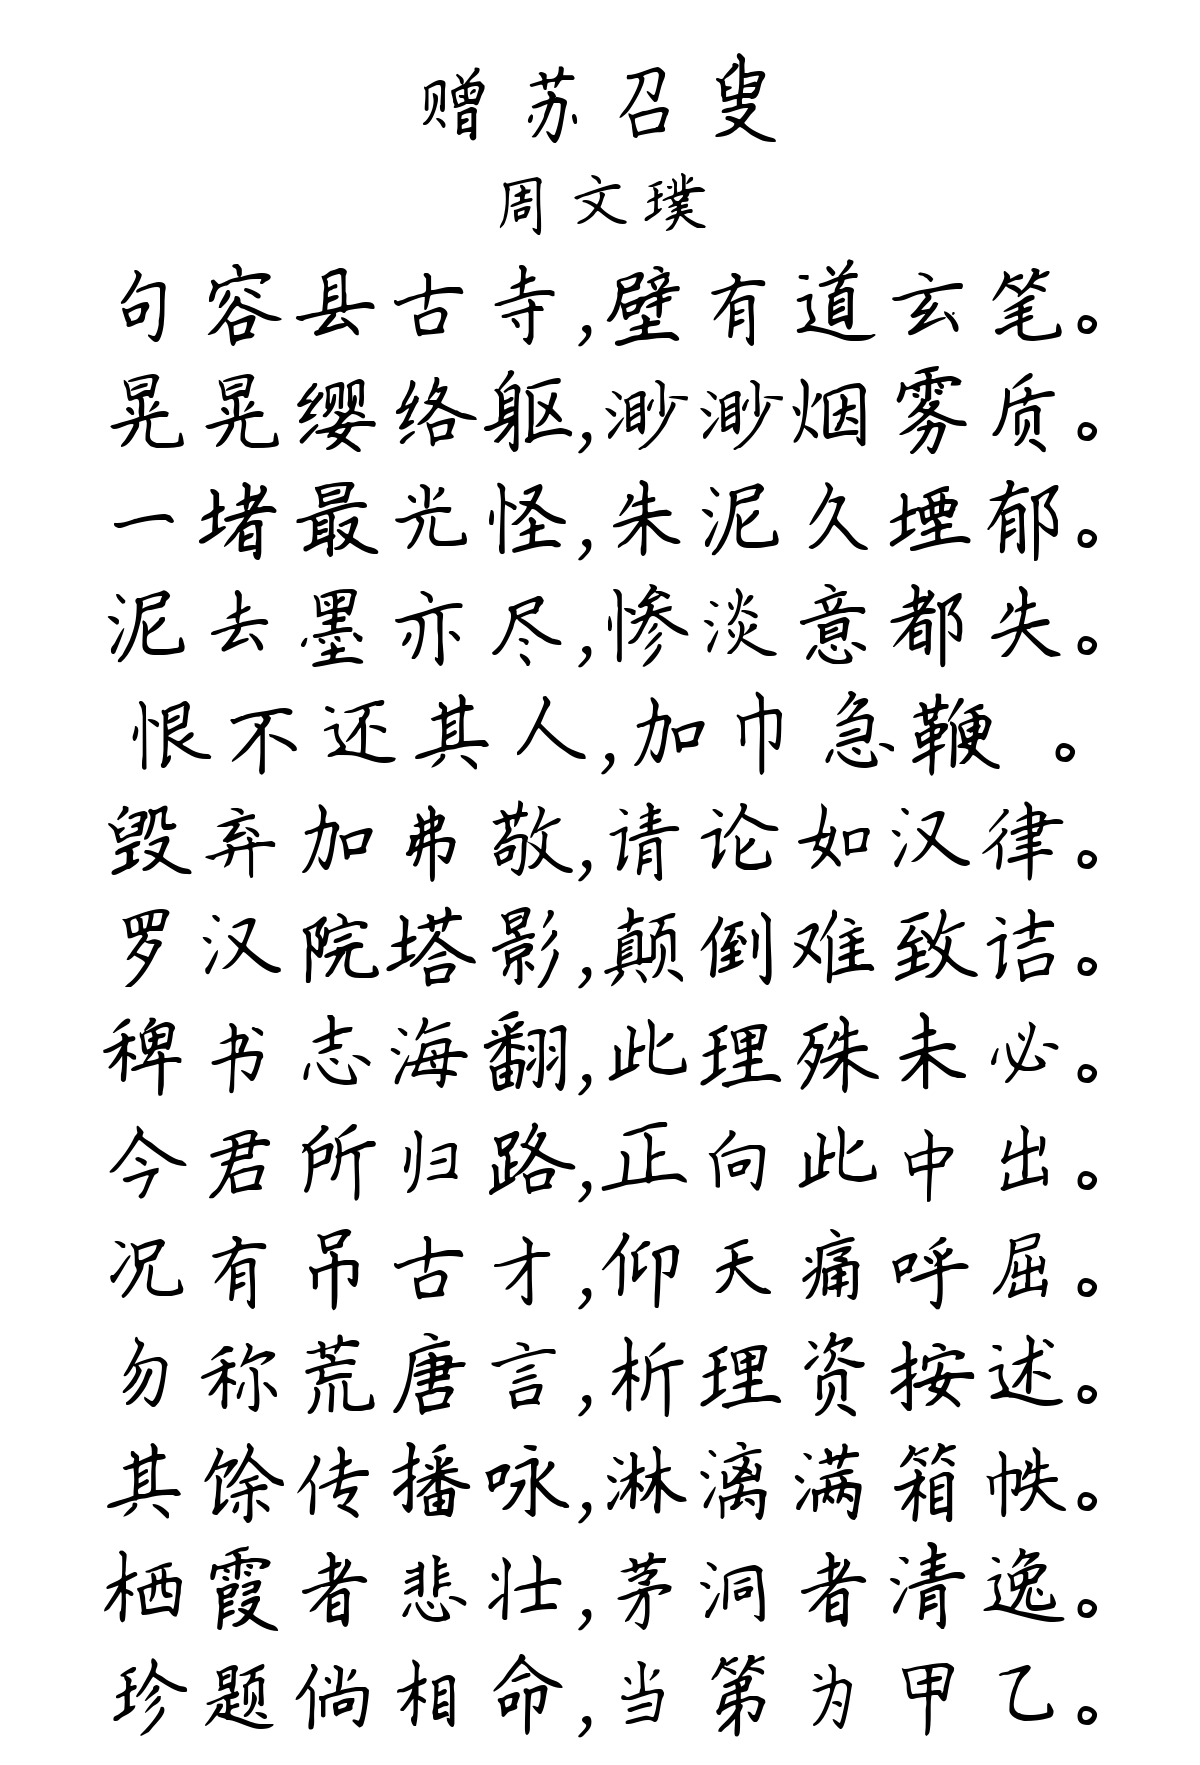 赠苏召叟
周文璞
句容县古寺,壁有道玄笔。
晃晃缨络躯,渺渺烟雾质。
一堵最光怪,朱泥久堙郁。
泥去墨亦尽,惨淡意都失。
恨不还其人,加巾急鞭 。
毁弃加弗敬,请论如汉律。
罗汉院塔影,颠倒难致诘。
稗书志海翻,此理殊未必。
今君所归路,正向此中出。
况有吊古才,仰天痛呼屈。
勿称荒唐言,析理资按述。
其馀传播咏,淋漓满箱帙。
栖霞者悲壮,茅洞者清逸。
珍题倘相命,当第为甲乙。